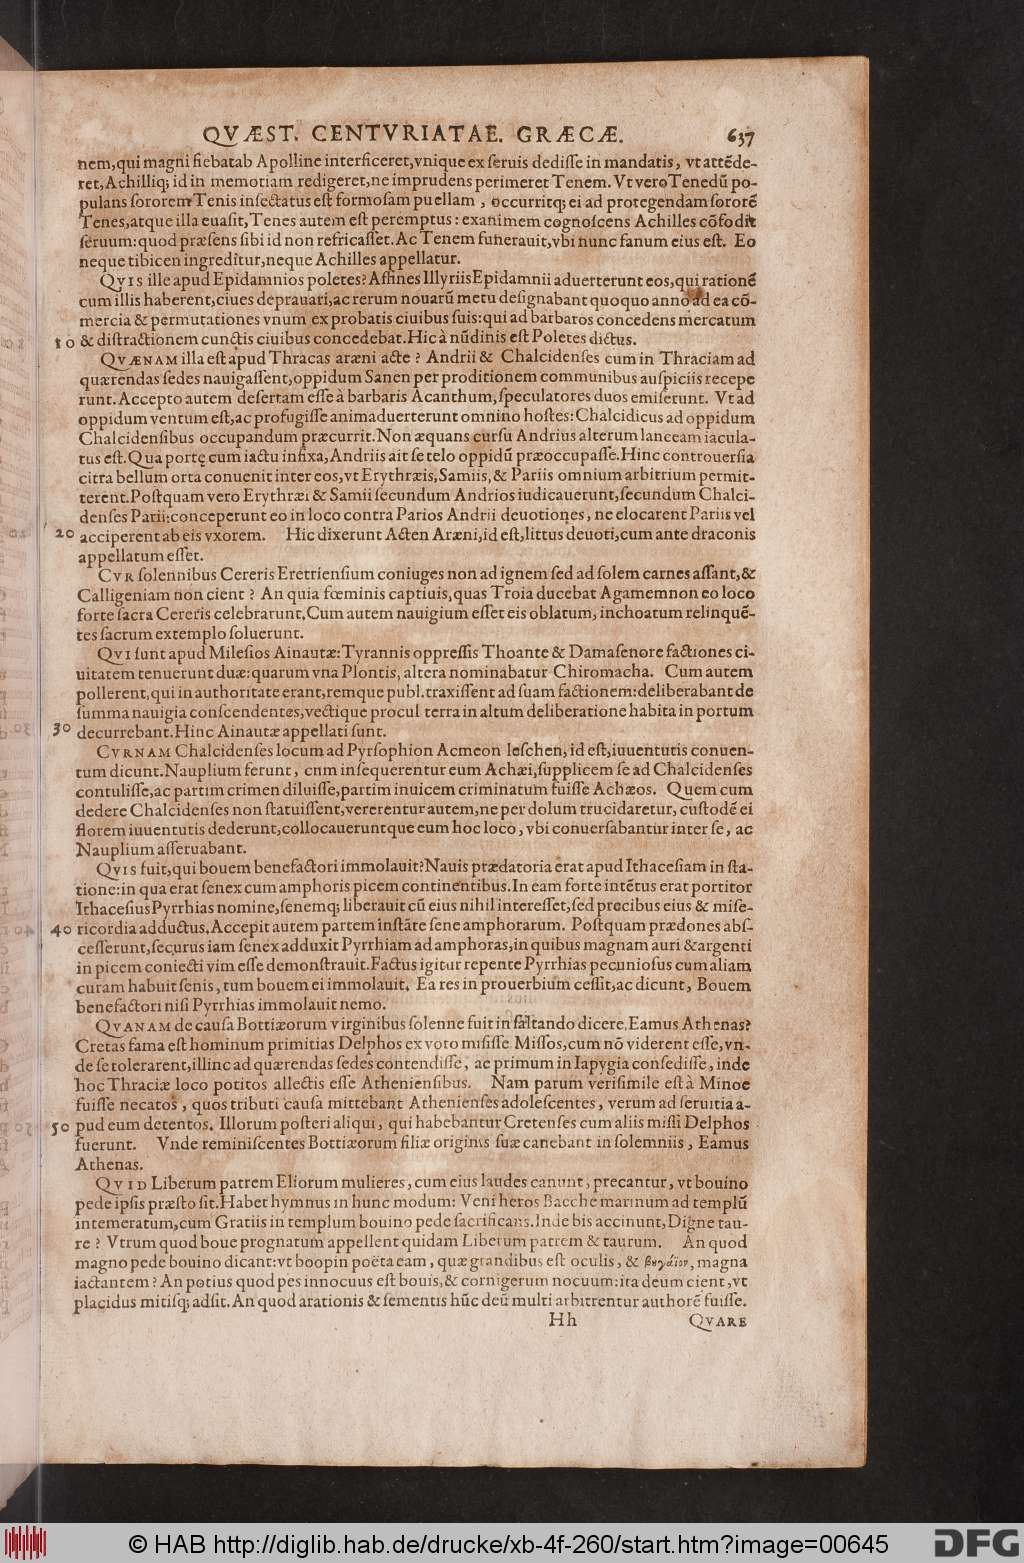 QVÆST. CENTVRIATAE. GRÆCÆ. 637
nem, qui magni fiebat ab Apolline interficeret, vnique ex ſeruis dediſſe in mandatis, vt attẽde-
ret, Achilliq; id in memoriam redigeret, ne imprudens perimeret Tenem. Vt vero Tenedũ po-
pulans ſororem Tenis inſectatus eſt formoſam puellam, occurritq; ei ad protegendam ſororẽ
Tenes, atque illa euaſit, Tenes autem eſt peremptus: exanimem cognoſcens Achilles cõfodit
ſeruum: quod præſens ſibi id non refricaſſet. Ac Tenem funerauit, vbi nunc fanum eius eſt. Eo
neque tibicen ingreditur, neque Achilles appellatur.
QVIS ille apud Epidamnios poletes? Affines Illyriis Epidamnii aduerterunt eos, qui rationẽ
cum illis haberent, ciues deprauari, ac rerum nouarũ metu deſignabant quoquo anno ad ea cõ-
mercia & permutationes vnum ex probatis ciuibus ſuis: qui ad barbaros concedens mercatum
10 & diſtractionem cunctis ciuibus concedebat. Hic à nũdinis eſt Poletes dictus.
QVÆNAM illa eſt apud Thracas aræni acte? Andrii & Chalcidenſes cum in Thraciam ad
quærendas ſedes nauigaſſent, oppidum Sanen per proditionem communibus auſpiciis recepe
runt. Accepto autem deſertam eſſe à barbaris Acanthum, ſpeculatores duos emiſerunt. Vt ad
oppidum ventum eſt, ac profugiſſe animaduerterunt omnino hoſtes: Chalcidicus ad oppidum
Chalcidenſibus occupandum præcurrit. Non æquans curſu Andrius alterum lanceam iacula-
tus eſt. Qua portę cum iactu infixa, Andriis ait ſe telo oppidũ præoccupaſſe. Hinc controuerſia
citra bellum orta conuenit inter eos, vt Erythræis, Samiis, & Pariis omnium arbitrium permit-
terent. Poſtquam vero Erythræi & Samii ſecundum Andrios iudicauerunt, ſecundum Chalci-
denſes Parii: conceperunt eo in loco contra Parios Andrii deuotiones, ne elocarent Pariis vel
20 acciperent ab eis vxorem. Hic dixerunt Acten Aræni, id eſt, littus deuoti, cum ante draconis
appellatum eſſet.
CVR ſolennibus Cereris Eretrienſium coniuges non ad ignem ſed ad ſolem carnes aſſant, &
Calligeniam non cient? An quia fœminis captiuis, quas Troia ducebat Agamemnon eo loco
forte ſacra Cereris celebrarunt. Cum autem nauigium eſſet eis oblatum, inchoatum relinquẽ-
tes ſacrum extemplo ſoluerunt.
QVI ſunt apud Mileſios Ainautæ: Tyrannis oppreſſis Thoante & Damaſenore factiones ci-
uitatem tenuerunt duæ: quarum vna Plontis, altera nominabatur Chiromacha. Cum autem
pollerent, qui in authoritate erant, remque publ. traxiſſent ad ſuam factionem: deliberabant de
ſumma nauigia conſcendentes, vectique procul terra in altum deliberatione habita in portum
30 decurrebant. Hinc Ainautæ appellati ſunt.
CVRNAM Chalcidenſes locum ad Pyrſophion Acmeon leſchen, id eſt, iuuentutis conuen-
tum dicunt. Nauplium ferunt, cum inſequerentur eum Achæi, ſupplicem ſe ad Chalcidenſes
contuliſſe, ac partim crimen diluiſſe, partim inuicem criminatum fuiſſe Achæos. Quem cum
dedere Chalcidenſes non ſtatuiſſent, vererentur autem, ne per dolum trucidaretur, cuſtodẽ ei
florem iuuentutis dederunt, collocaueruntque eum hoc loco, vbi conuerſabantur inter ſe, ac
Nauplium aſſeruabant.
QVIS fuit, qui bouem benefactori immolauit? Nauis prædatoria erat apud Ithaceſiam in ſta-
tione: in qua erat ſenex cum amphoris picem continentibus. In eam forte intẽtus erat portitor
Ithaceſius Pyrrhias nomine, ſenemq; liberauit cũ eius nihil intereſſet, ſed precibus eius & miſe-
40 ricordia adductus. Accepit autem partem inſtãte ſene amphorarum. Poſtquam prædones abſ-
ceſſerunt, ſecurus iam ſenex adduxit Pyrrhiam ad amphoras, in quibus magnam auri & argenti
in picem coniecti vim eſſe demonſtrauit. Factus igitur repente Pyrrhias pecunioſus cum aliam
curam habuit ſenis, tum bouem ei immolauit. Ea res in prouerbium ceſſit, ac dicunt, Bouem
benefactori niſi Pyrrhias immolauit nemo.
QVANAM de cauſa Bottiæorum virginibus ſolenne fuit in ſaltando dicere, Eamus Athenas?
Cretas fama eſt hominum primitias Delphos ex voto miſiſſe. Miſſos, cum nõ viderent eſſe, vn-
de ſe tolerarent, illinc ad quærendas ſedes contendiſſe, ac primum in Iapygia conſediſſe, inde
hoc Thraciæ loco potitos allectis eſſe Athenienſibus. Nam parum veriſimile eſt à Minoe
fuiſſe necatos, quos tributi cauſa mittebant Athenienſes adoleſcentes, verum ad ſeruitia a-
50 pud eum detentos. Illorum poſteri aliqui, qui habebantur Cretenſes cum aliis miſſi Delphos
fuerunt. Vnde reminiſcentes Bottiæorum filiæ originis ſuæ canebant in ſolemniis, Eamus
Athenas.
QVID Liberum patrem Eliorum mulieres, cum eius laudes canunt, precantur, vt bouino
pede ipſis præſto ſit. Habet hymnus in hunc modum: Veni heros Bacche marinum ad templũ
intemeratum, cum Gratiis in templum bouino pede ſacrificans. Inde bis accinunt, Digne tau-
re? Vtrum quod boue prognatum appellent quidam Liberum patrem & taurum. An quod
magno pede bouino dicant: vt boopin poëta eam, quæ grandibus eſt oculis, & βυγάϊον, magna
iactantem? An potius quod pes innocuus eſt bouis, & cornigerum nocuum: ita deum cient, vt
placidus mitiſq; adſit. An quod arationis & ſementis hũc deũ multi arbitrentur authorẽ fuiſſe.
Hh QVARE
© HAB http://diglib.hab.de/drucke/xb-4f-260/start.htm?image=00645
DFG